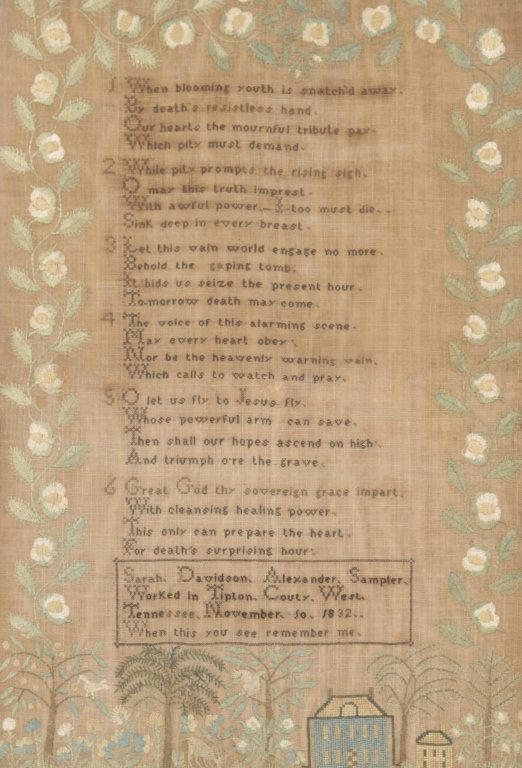 1 When blooming youth is snatch'd away.
By death's resistless hand.
Our hearts the mournful tribute pay.
Which pity must demand.
2 While pity prompts the rising sigh.
O may this truth imprest.
With awful power.– I too must die..
Sink deep in every breast.
3 Let this vain world engage no more.
Behold the gaping tomb.
It bids us seize the present hour.
Tomorrow death may come.
4 The voice of this alarming scene.
May every heart obey.
Nor be the heavenly warning vain.
Which calls to watch and pray.
5 O let us fly to Jesus fly.
Whose powerful arm can save.
Then shall our hopes ascend on high.
And triumph o're the grave.
6 Great God thy sovereign grace impart.
With cleansing healing power.
This only can prepare the heart.
For death's surprising hour.
Sarah. Davidson. Alexander. Sampler.
Worked In Tipton. Couty. West.
Tennessee. November. 10. 1832..
When this you see remember me.